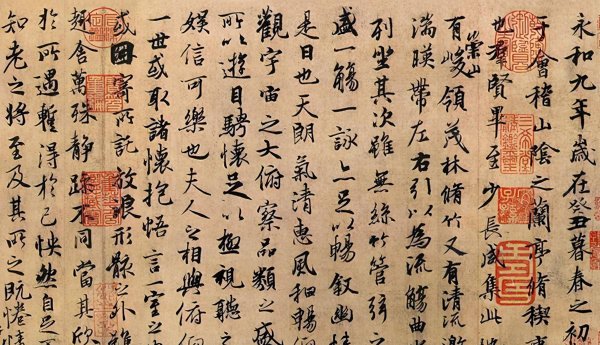 永和九年歲在癸丑暮春之初
于會稽山陰之蘭亭脩稧事
也群賢畢至少長咸集此地
有崇山峻領茂林脩竹又有清流激
湍暎帶左右引以為流觴曲
列坐其次雖無絲竹管弦之
盛一觴一詠亦足以暢敘幽情
是日也天朗氣清惠風和暢仰
觀宇宙之大俯察品類之盛
所以遊目騁懷足以極視聽之
娛信可樂也夫人之相與俯仰
一世或取諸懷抱悟言一室之
或因寄所託放浪形骸之外雖
趣舍萬殊靜躁不同當其欣
於所遇蹔得於己怏然自足
知老之將至及其所之既惓情